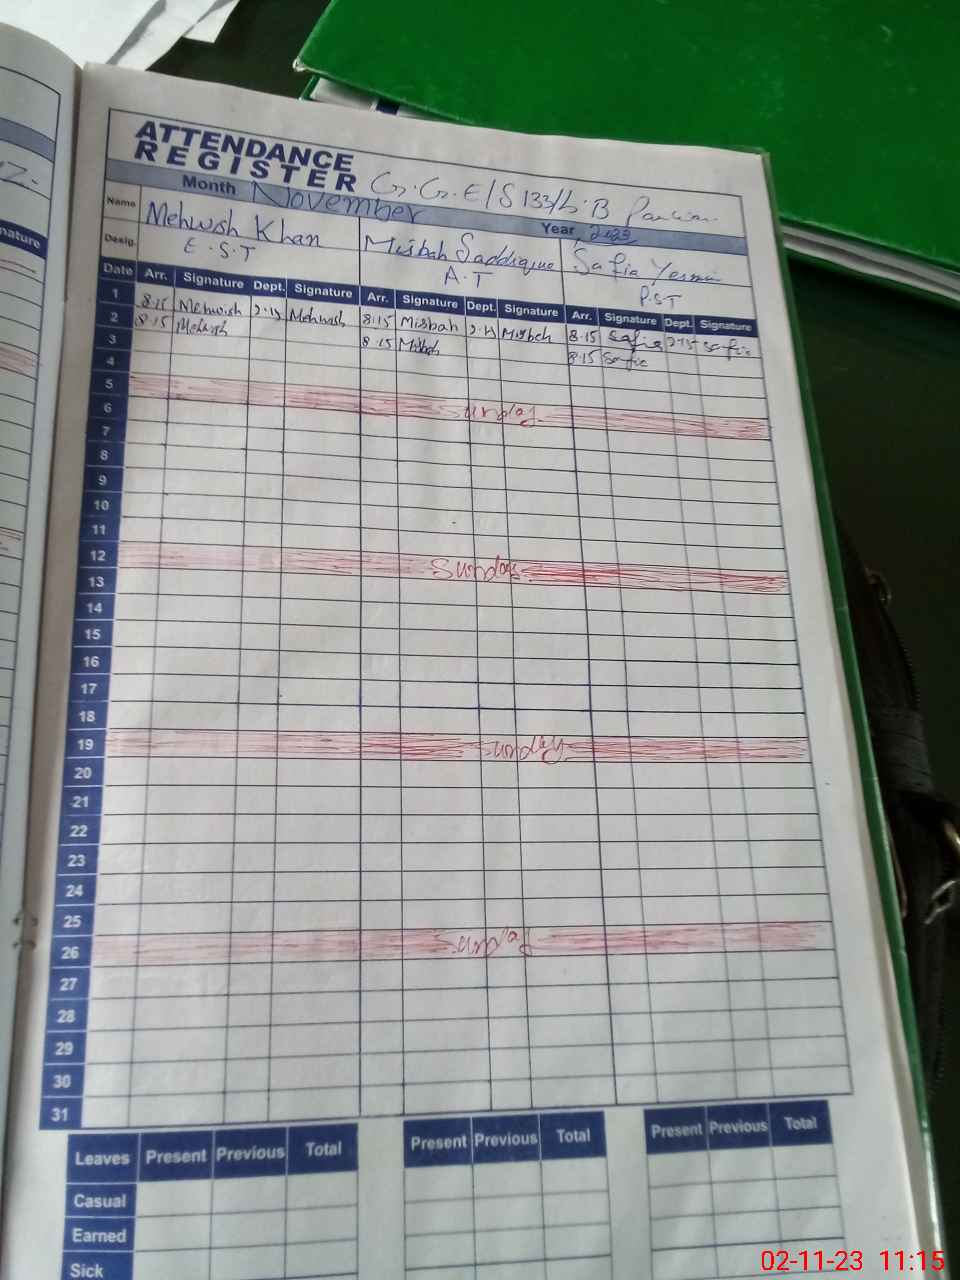 ATTENDANCE
REGISTER G.G.E/S 133/L.B
Month November Year 2023
Name Mehwish Khan Misbah Saddique Safia
Desig. E.S.T A.T P.S.T
Date Arr. Signature Dept. Signature Arr. Signature Dept. Signature Arr. Signature Dept. Signature
1 8.15 Mehwish 2.15 Mehwish 8.15 Misbah 2.15 Misbah 8.15 Safia 2.15 Safia
2 8.15 Mehwish 8.15 Misbah 8.15 Safia
3
4
5 Sunday
6
7
8
9
10
11
12 Sunday
13
14
15
16
17
18
19 Sunday
20
21
22
23
24
25
26 Sunday
27
28
29
30
31
Leaves Present Previous Total Present Previous Total Present Previous Total
Casual
Earned
Sick
nature
02-11-23 11:15